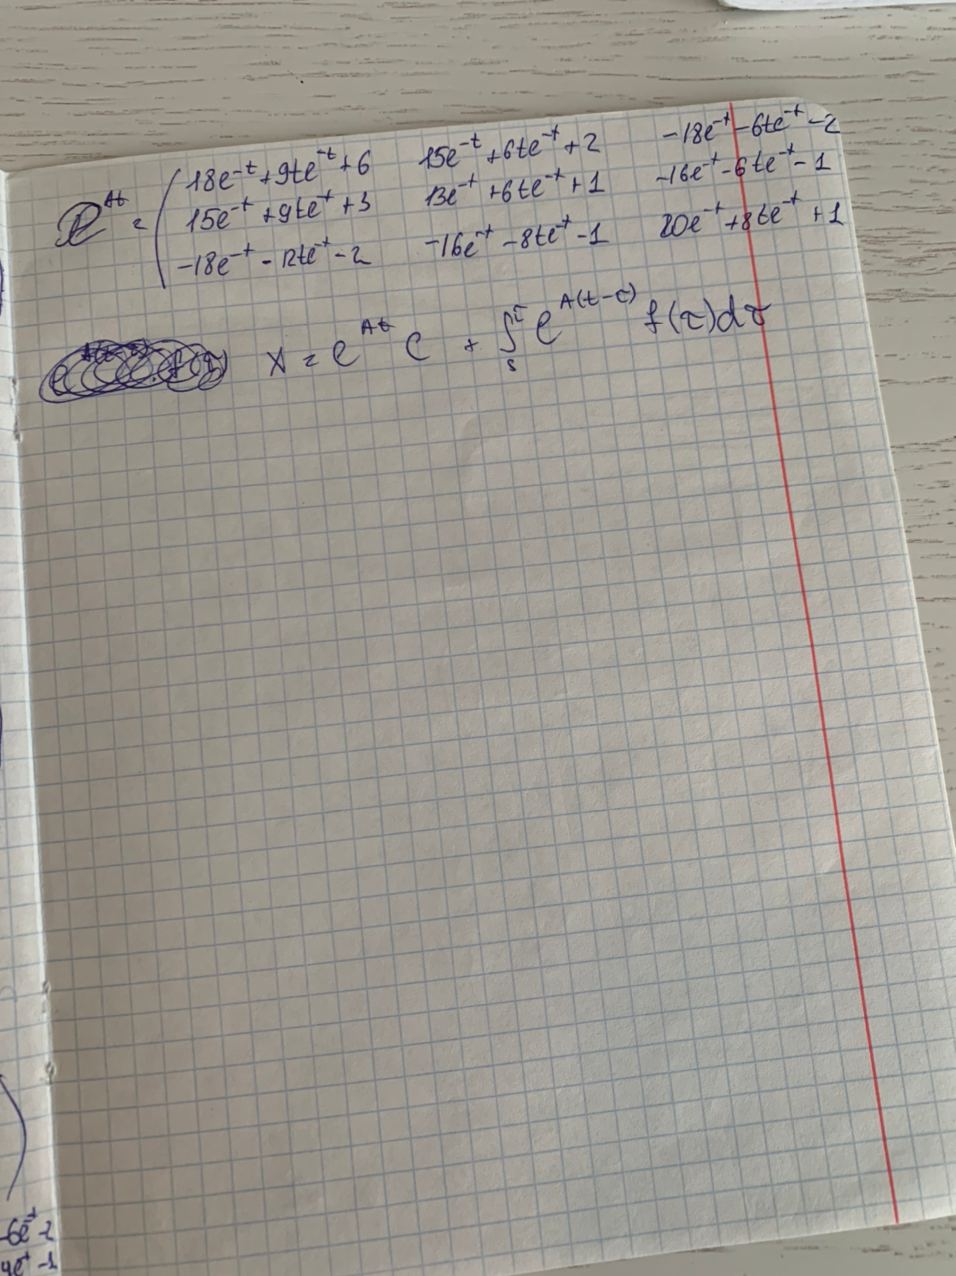 e^{At} = ( 18e^{-t}+9te^{-t}+6 15e^{-t}+6te^{-t}+2 -18e^{-t}-6te^{-t}-2
15e^{-t}+9te^{-t}+3 13e^{-t}+6te^{-t}+1 -16e^{-t}-6te^{-t}-1
-18e^{-t}-12te^{-t}-2 -16e^{-t}-8te^{-t}-1 20e^{-t}+8te^{-t}+1
X = e^{At} C + ∫_s^τ e^{A(t-τ)} f(τ)dτ
-6e^{-t}-2
4e^{-t}-1